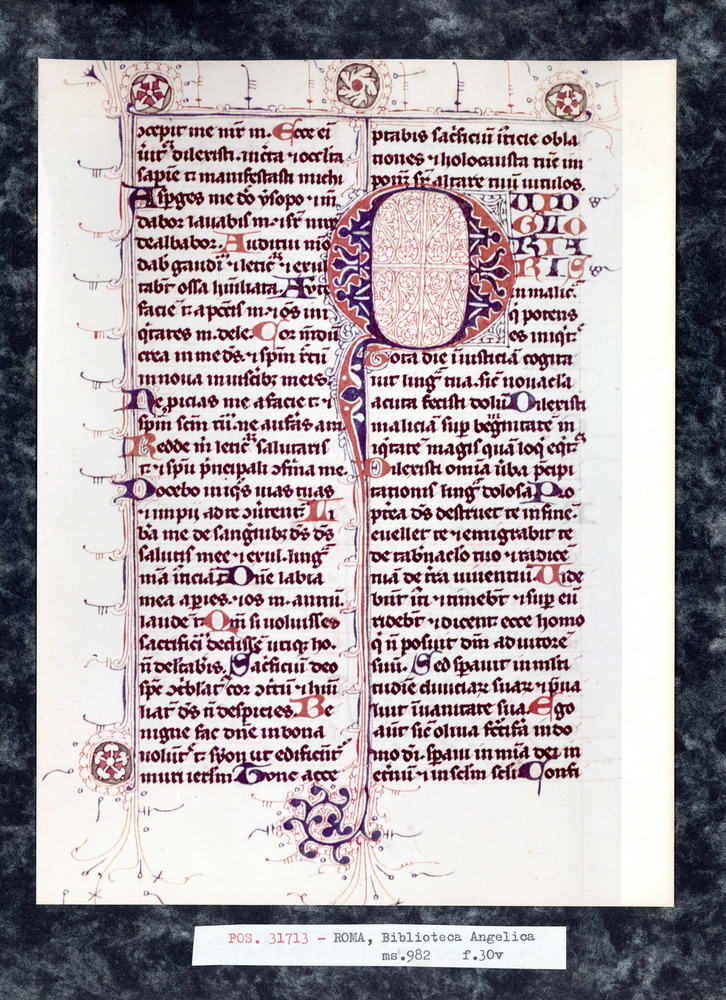 ɔcepit me mr̄ m. Ecce eī
ūit᷑ dilexisti. incͥta ⁊ occl̄ta
sapīe t. manifestasti michi
Aspges me dō ysopo ⁊ mū
dabor lauabis m. ⁊ sr̄ niuē
dealbabor. Auditui mō
dab̄ gaudī ⁊ leticͣ ⁊ exul
tabt̄ ossa humiliata. Aute
faciē t. a pcc̄is m. ⁊ oēs ini
qͥtates m. dele. Cor mūdū
crea in me ds̄. ⁊ sp̄m rc̄tū
innoua in uiscibꝫ meis.
Ne picias me a facie t. ⁊
sp̄m sc̄m tuū ne aufas a m
Redde m̄ leticͣ salutaris
t. ⁊ sp̄u pͥncipali ɔfirma me.
Docebo iniqͦs uias tuas
⁊ impii ad te ɔūtent᷑. Li
ba me de sanguībꝫ ds̄ ds̄
salutis mee ⁊ exul. linḡ
mā iu͂ciā t. Dn̄e labia
mea apies. ⁊ os m. annū.
laudē t. Qm̄ si uoluisses
sacrifici dedissē utiqꝫ ho.
n̄ delc̄abis. Sacͥficiū deo
sp̄c ɔtͥblat᷑ cor ɔtͥtū ⁊ hūi
liat᷑ ds̄ n̄ despicies. Be
nigne fac dn̄e in bona
uolūt᷑ t. syon ut edificent᷑
muri ierlm̄. Tunc acce
ptabis sacͥficiū iu͂ticie obla
tiones ⁊ holocausta tūc im
pon̄t sr̄ altare tuū uitulos.
QUID
GLO
RIA
RIS
in malic̄.
q̄ potens
es iniqͥt᷑.
Tota die iniusticiā cogita
uit ling᷑ tua. sic̄ nouacla
acuta fecisti dolū. Dilexisti
maliciā sup benͥgnitatē in
iqͥtatē magis quā loq̄ eqͥt᷑.
Dilexisti omīa ūba pͥcipi
tationis ling᷑ dolosa. Pro
ptea ds̄ destruet te in finē.
euellet te ⁊ emigrabit te
de tabnaclo tuo ⁊ radicē
tuā de tͤra uiuentiū. Vide
būt iu͂ti ⁊ timebt̄ ⁊ sup eū
ridebt̄ ⁊ dicent ecce homo
q̇ n̄ posuit dm̄ adiutorē
suū. Sed spauit in mlti
tudie diuiciaꝝ suaꝝ ⁊ pͥua
luit ī uanitate sua. Ego
aūt sic̄ oliua fctīfa in do
mo di. spaui in mīa dei in
etn̄ū ⁊ in sclm̄ scl̄i. Confi
POS. 31713 - ROMA, Biblioteca Angelica
ms.982 f.30v